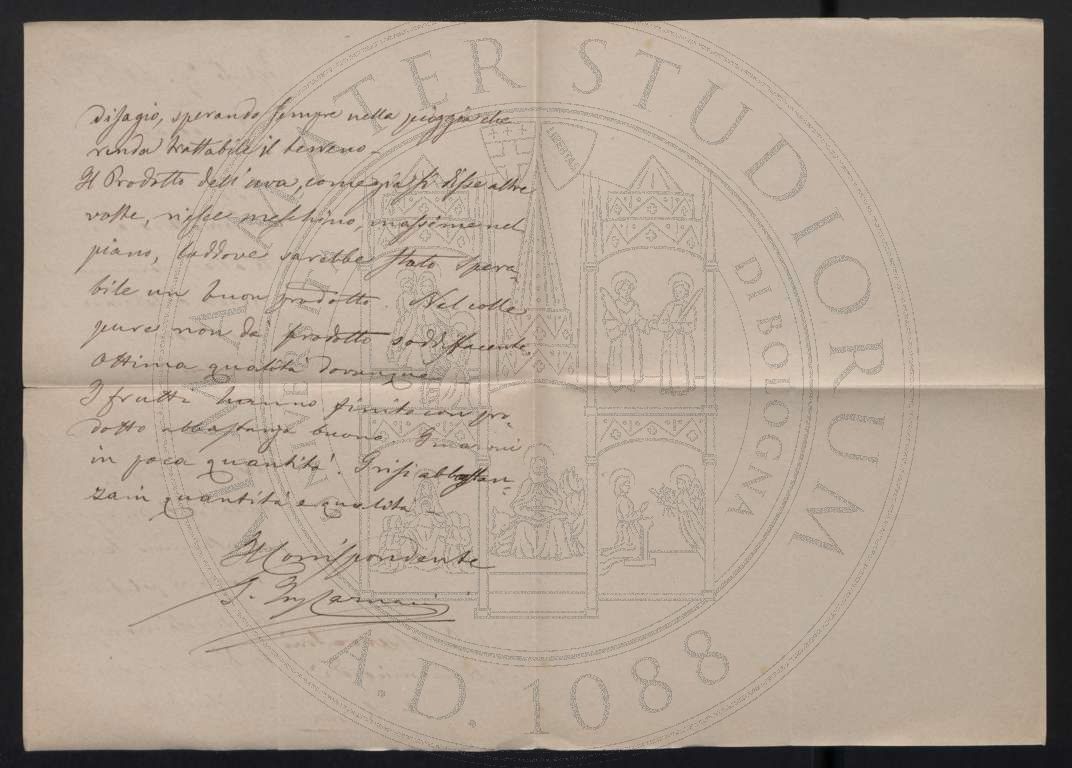 disagio, sperando sempre nella pioggia che
renda trattabile il terreno.
Il Prodotto dell'uva, come già si disse altre
volte, riesce meschino, massime nel
piano, laddove sarebbe stato spera-
bile un buon prodotto. Nel colle
pure non dà prodotto soddisfacente.
Ottima qualità dovunque.
I frutti hanno finito con pro-
dotto abbastanza buono. I maroni
in poca quantità. abbastan-
za in quantità e qualità.
Il Corrispondente
ALMA MATER STUDIORUM
A.D. 1088
DI BOLOGNA
LIBERTAS